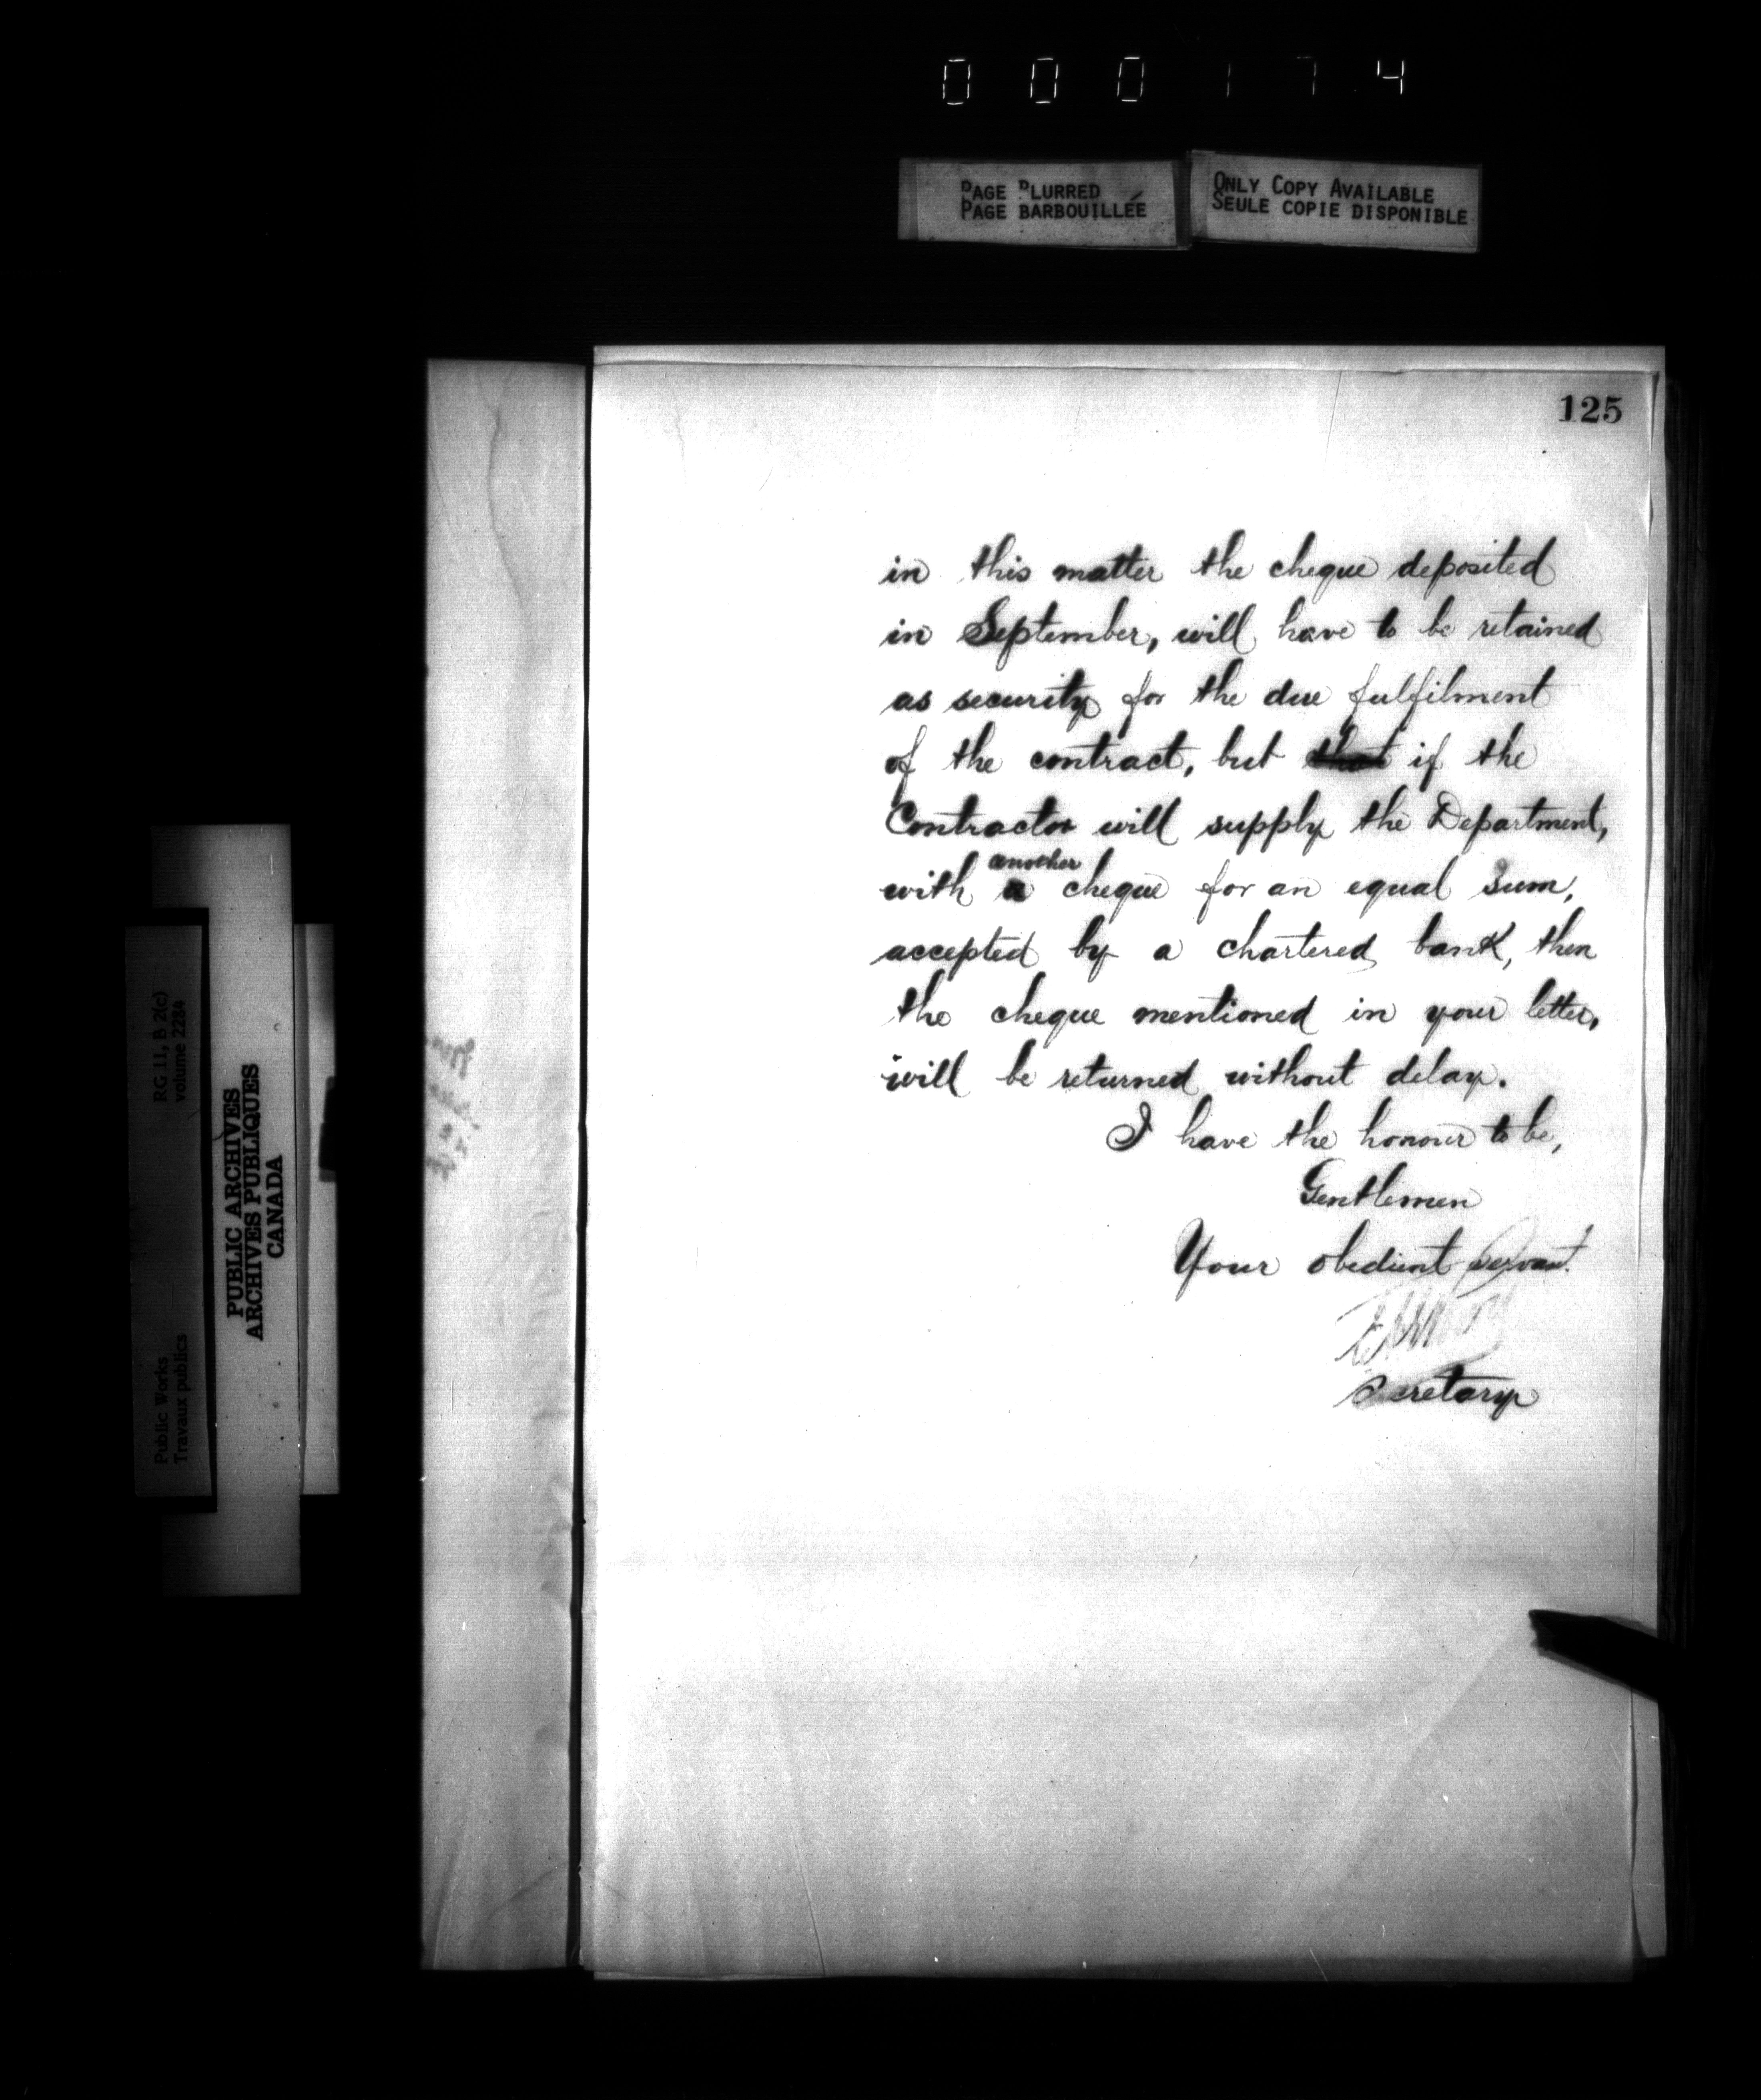 000174
PAGE BLURRED
PAGE BARBOUILLÉE
ONLY COPY AVAILABLE
SEULE COPIE DISPONIBLE
125
in this matter the cheque deposited
in September, will have to be retained
as security for the due fulfilment
of the contract, but that if the
Contractor will supply the Department,
another
with a cheque for an equal sum,
accepted by a chartered bank, then
the cheque mentioned in your letter,
will be returned without delay.
I have the honour to be,
Gentlemen
Your obedient servant.
Secretary
RG 11, B 2(c)
volume 2284
Public Works
Travaux publics
PUBLIC ARCHIVES
ARCHIVES PUBLIQUES
CANADA